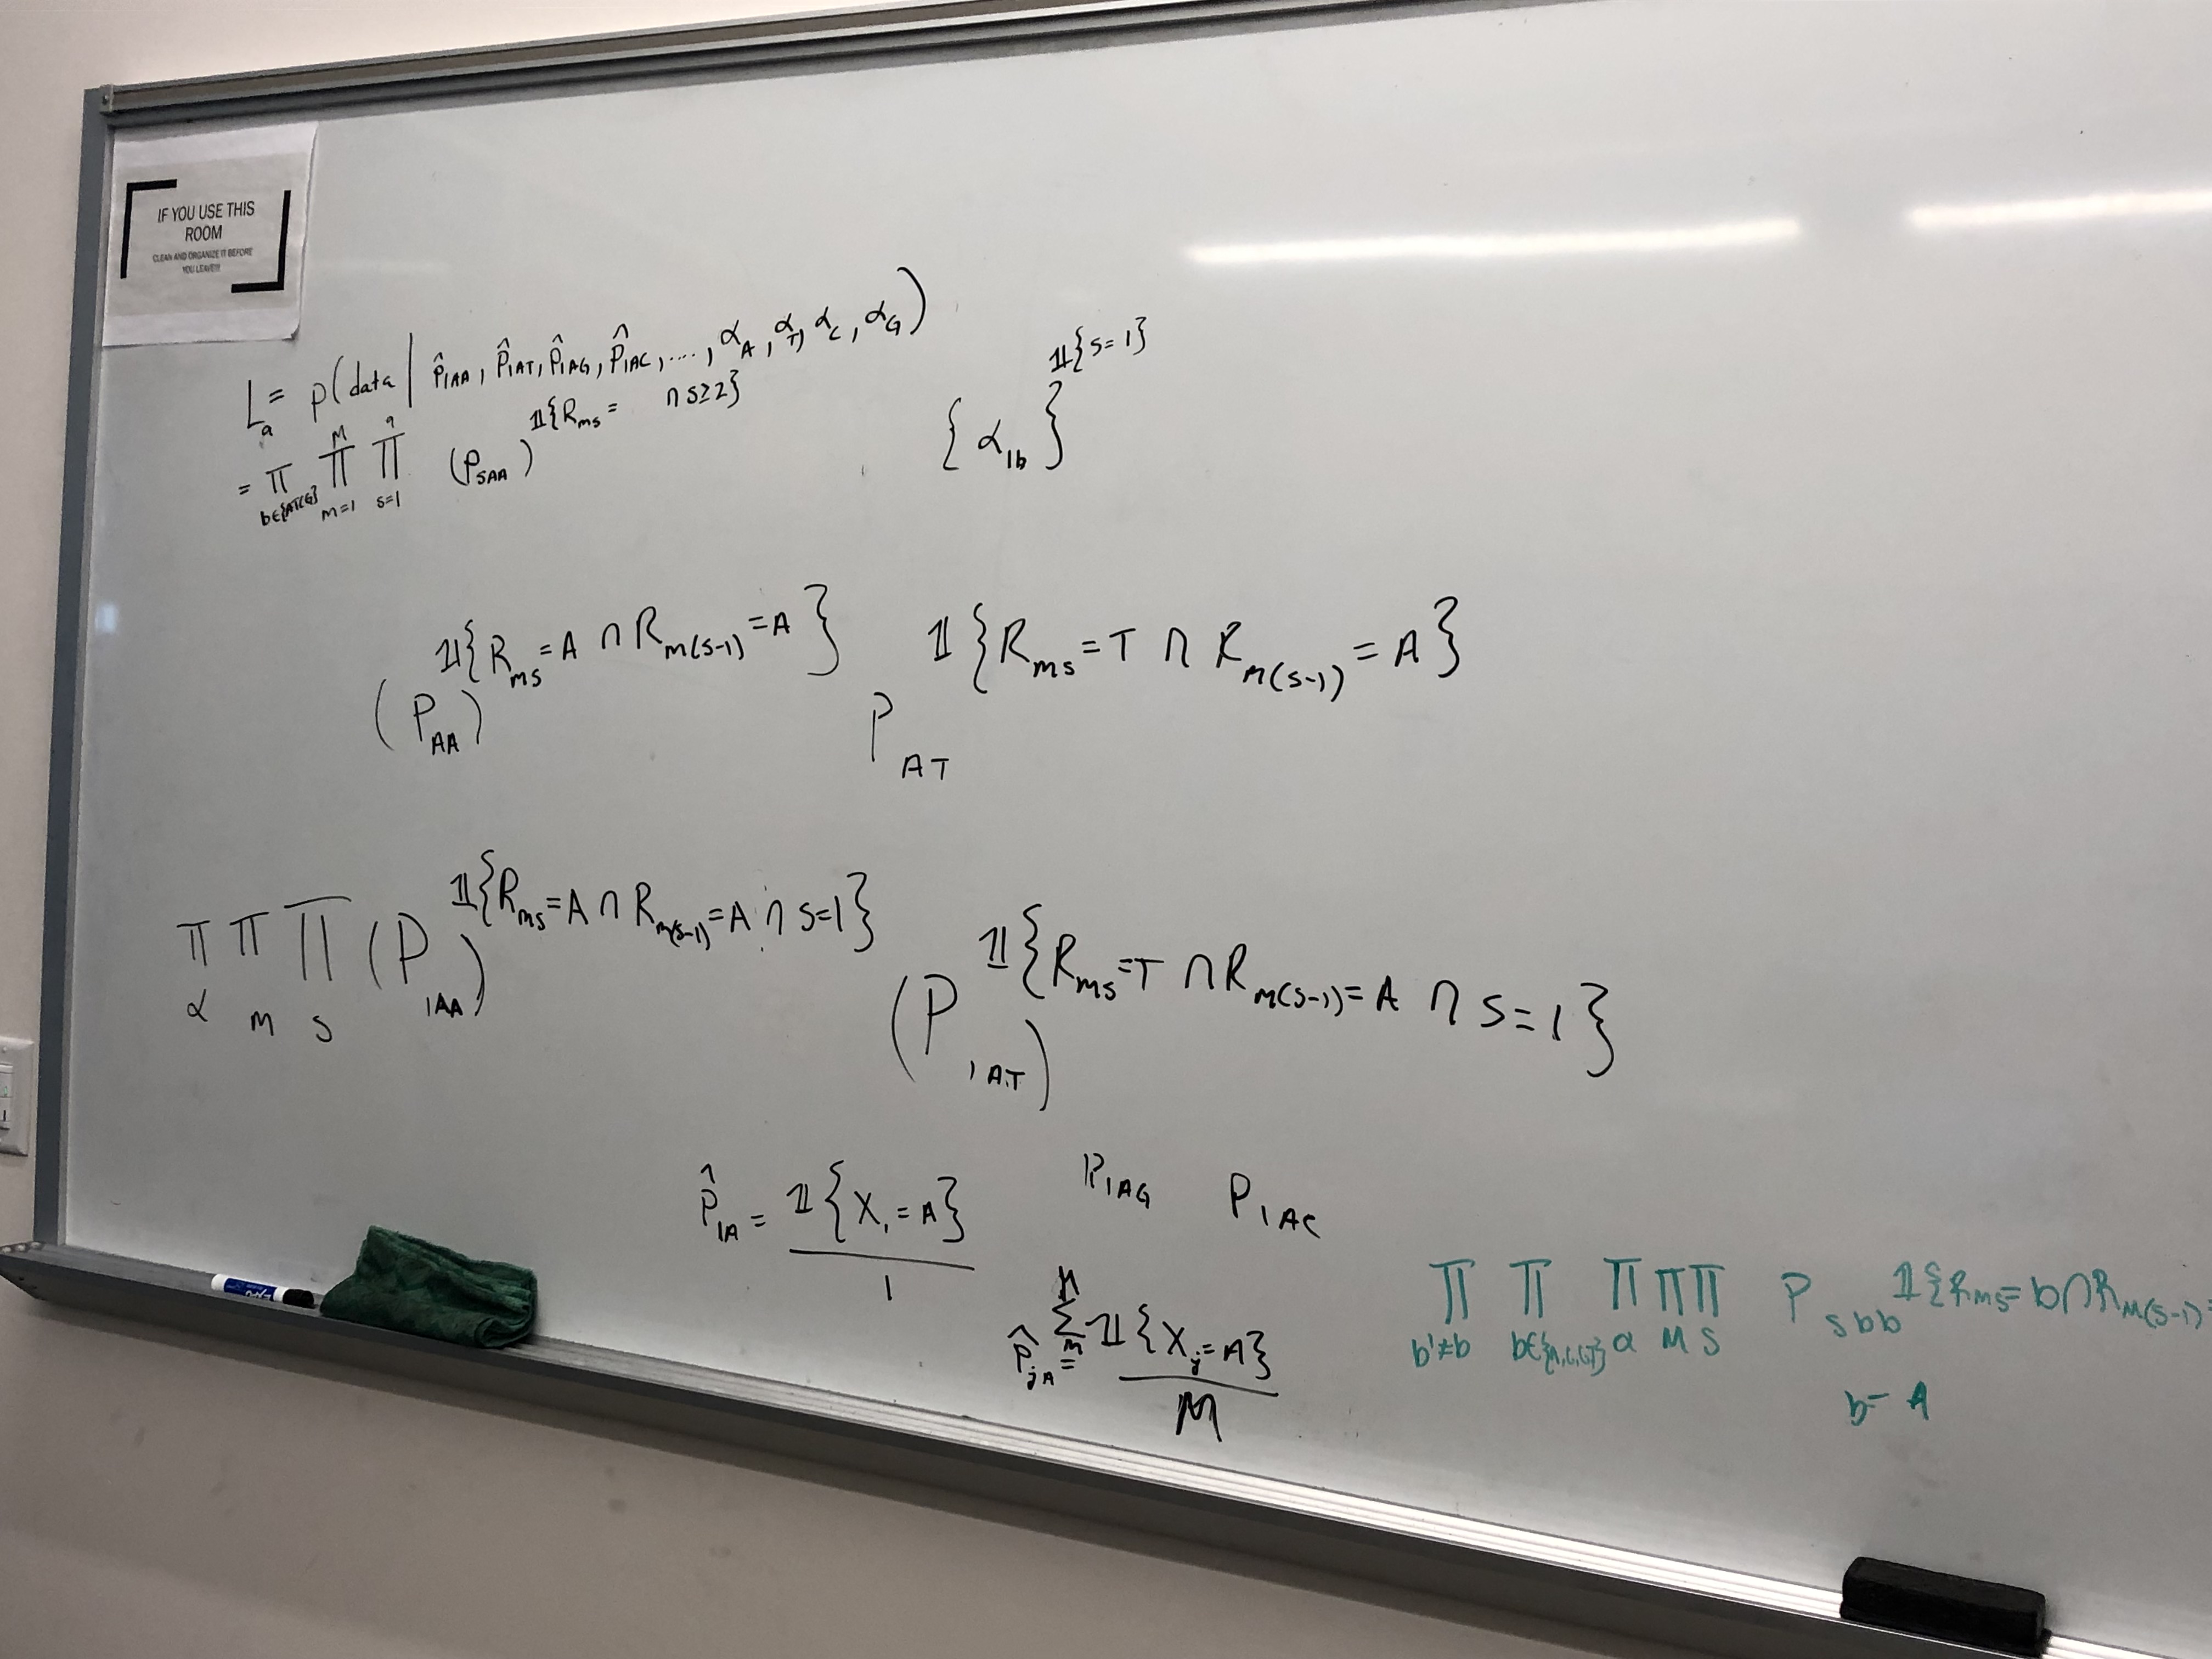 IF YOU USE THIS
ROOM
CLEAN AND ORGANIZE IT BEFORE
YOU LEAVE!!!
L_a = p(data | p̂_1AA, p̂_1AT, p̂_1AG, p̂_1AC, ...., α_A, α_T, α_C, α_G)
= π_{b∈{ATCG}} π_{m=1}^{M} π_{s=1}^{9} (P_SAA)^{𝟙{R_ms = ∩ s≥2}} {α_1b}^{𝟙{s=1}}
(P_AA)^{𝟙{R_ms = A ∩ R_m(s-1) = A}} P_AT^{𝟙{R_ms = T ∩ R_m(s-1) = A}}
π_α π_m π_s (P_1AA)^{𝟙{R_ms = A ∩ R_m(s-1) = A ∩ s=1}} (P_1AT)^{𝟙{R_ms = T ∩ R_m(s-1) = A ∩ s=1}}
P̂_1A = 𝟙{X_1 = A} / 1 P_1AG P_1AC
P̂_jA = Σ_m^M 𝟙{X_j = A} / M
π_{b'≠b} π π_α π_M π_S P_sbb 𝟙{R_ms = b ∩ R_m(s-1) =
b = A